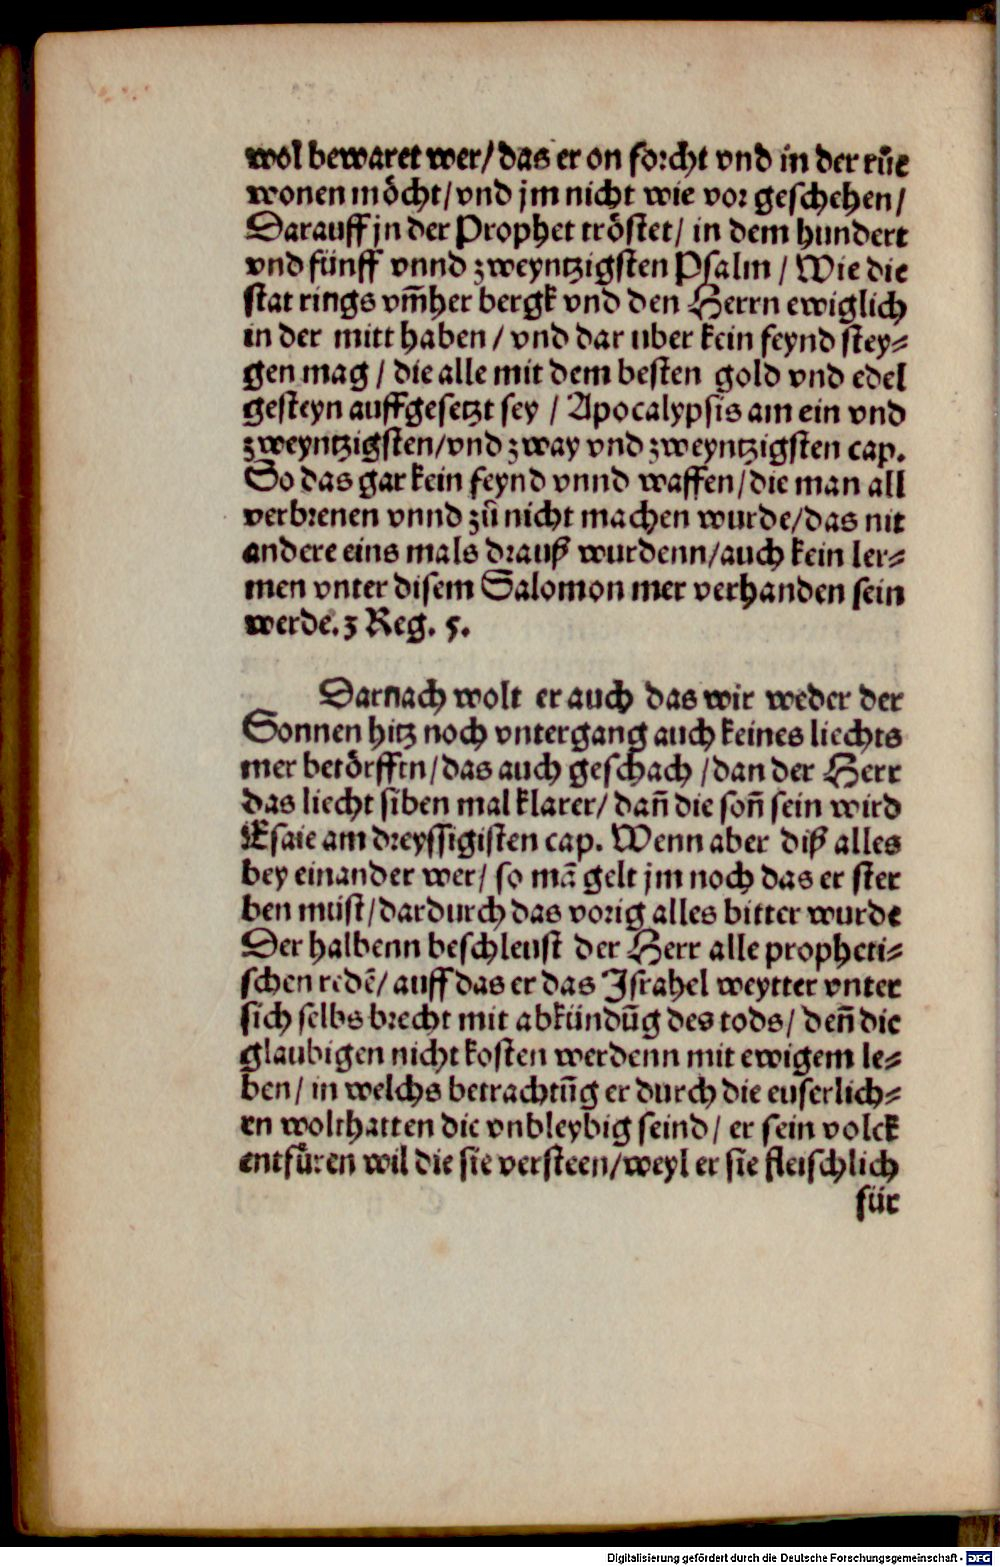 wol bewaret wer/ das er on forcht vnd in der růe
wonen möcht/ vnd jm nicht wie vor geschehen/
Darauff jn der Prophet tröstet/ in dem hundert
vnd fünff vnnd zweyntzigsten Psalm / Wie die
stat rings vm̄her bergk vnd den Herrn ewiglich
in der mitt haben / vnd dar uber kein feynd stey⸗
gen mag / die alle mit dem besten gold vnd edel
gesteyn auffgesetzt sey / Apocalypsis am ein vnd
zweyntzigsten/ vnd zway vnd zweyntzigsten cap.
So das gar kein feynd vnnd waffen/ die man all
verbrenen vnnd zů nicht machen wurde/ das nit
andere eins mals drauß wurdenn/ auch kein ler⸗
men vnter disem Salomon mer verhanden sein
werde. 3 Reg. 5.
Darnach wolt er auch das wir weder der
Sonnen hitz noch vntergang auch keines liechts
mer betörfften/ das auch geschach / dan der Herr
das liecht siben mal klarer/ dan̄ die son̄ sein wird
Esaie am dreyssigisten cap. Wenn aber diß alles
bey einander wer/ so mā gelt jm noch das er ster
ben müst/ dardurch das vorig alles bitter wurde
Der halbenn beschleust der Herr alle propheti⸗
schen redē/ auff das er das Israhel weytter vnter
sich selbs brecht mit abkündūg des tods/ den̄ die
glaubigen nicht kosten werdenn mit ewigem le⸗
ben/ in welchs betrachtūg er durch die euserlich⸗
en wolthatten die vnbleybig seind/ er sein volck
entfůren wil die sie versteen/ weyl er sie fleischlich
für
Digitalisierung gefördert durch die Deutsche Forschungsgemeinschaft - DFG